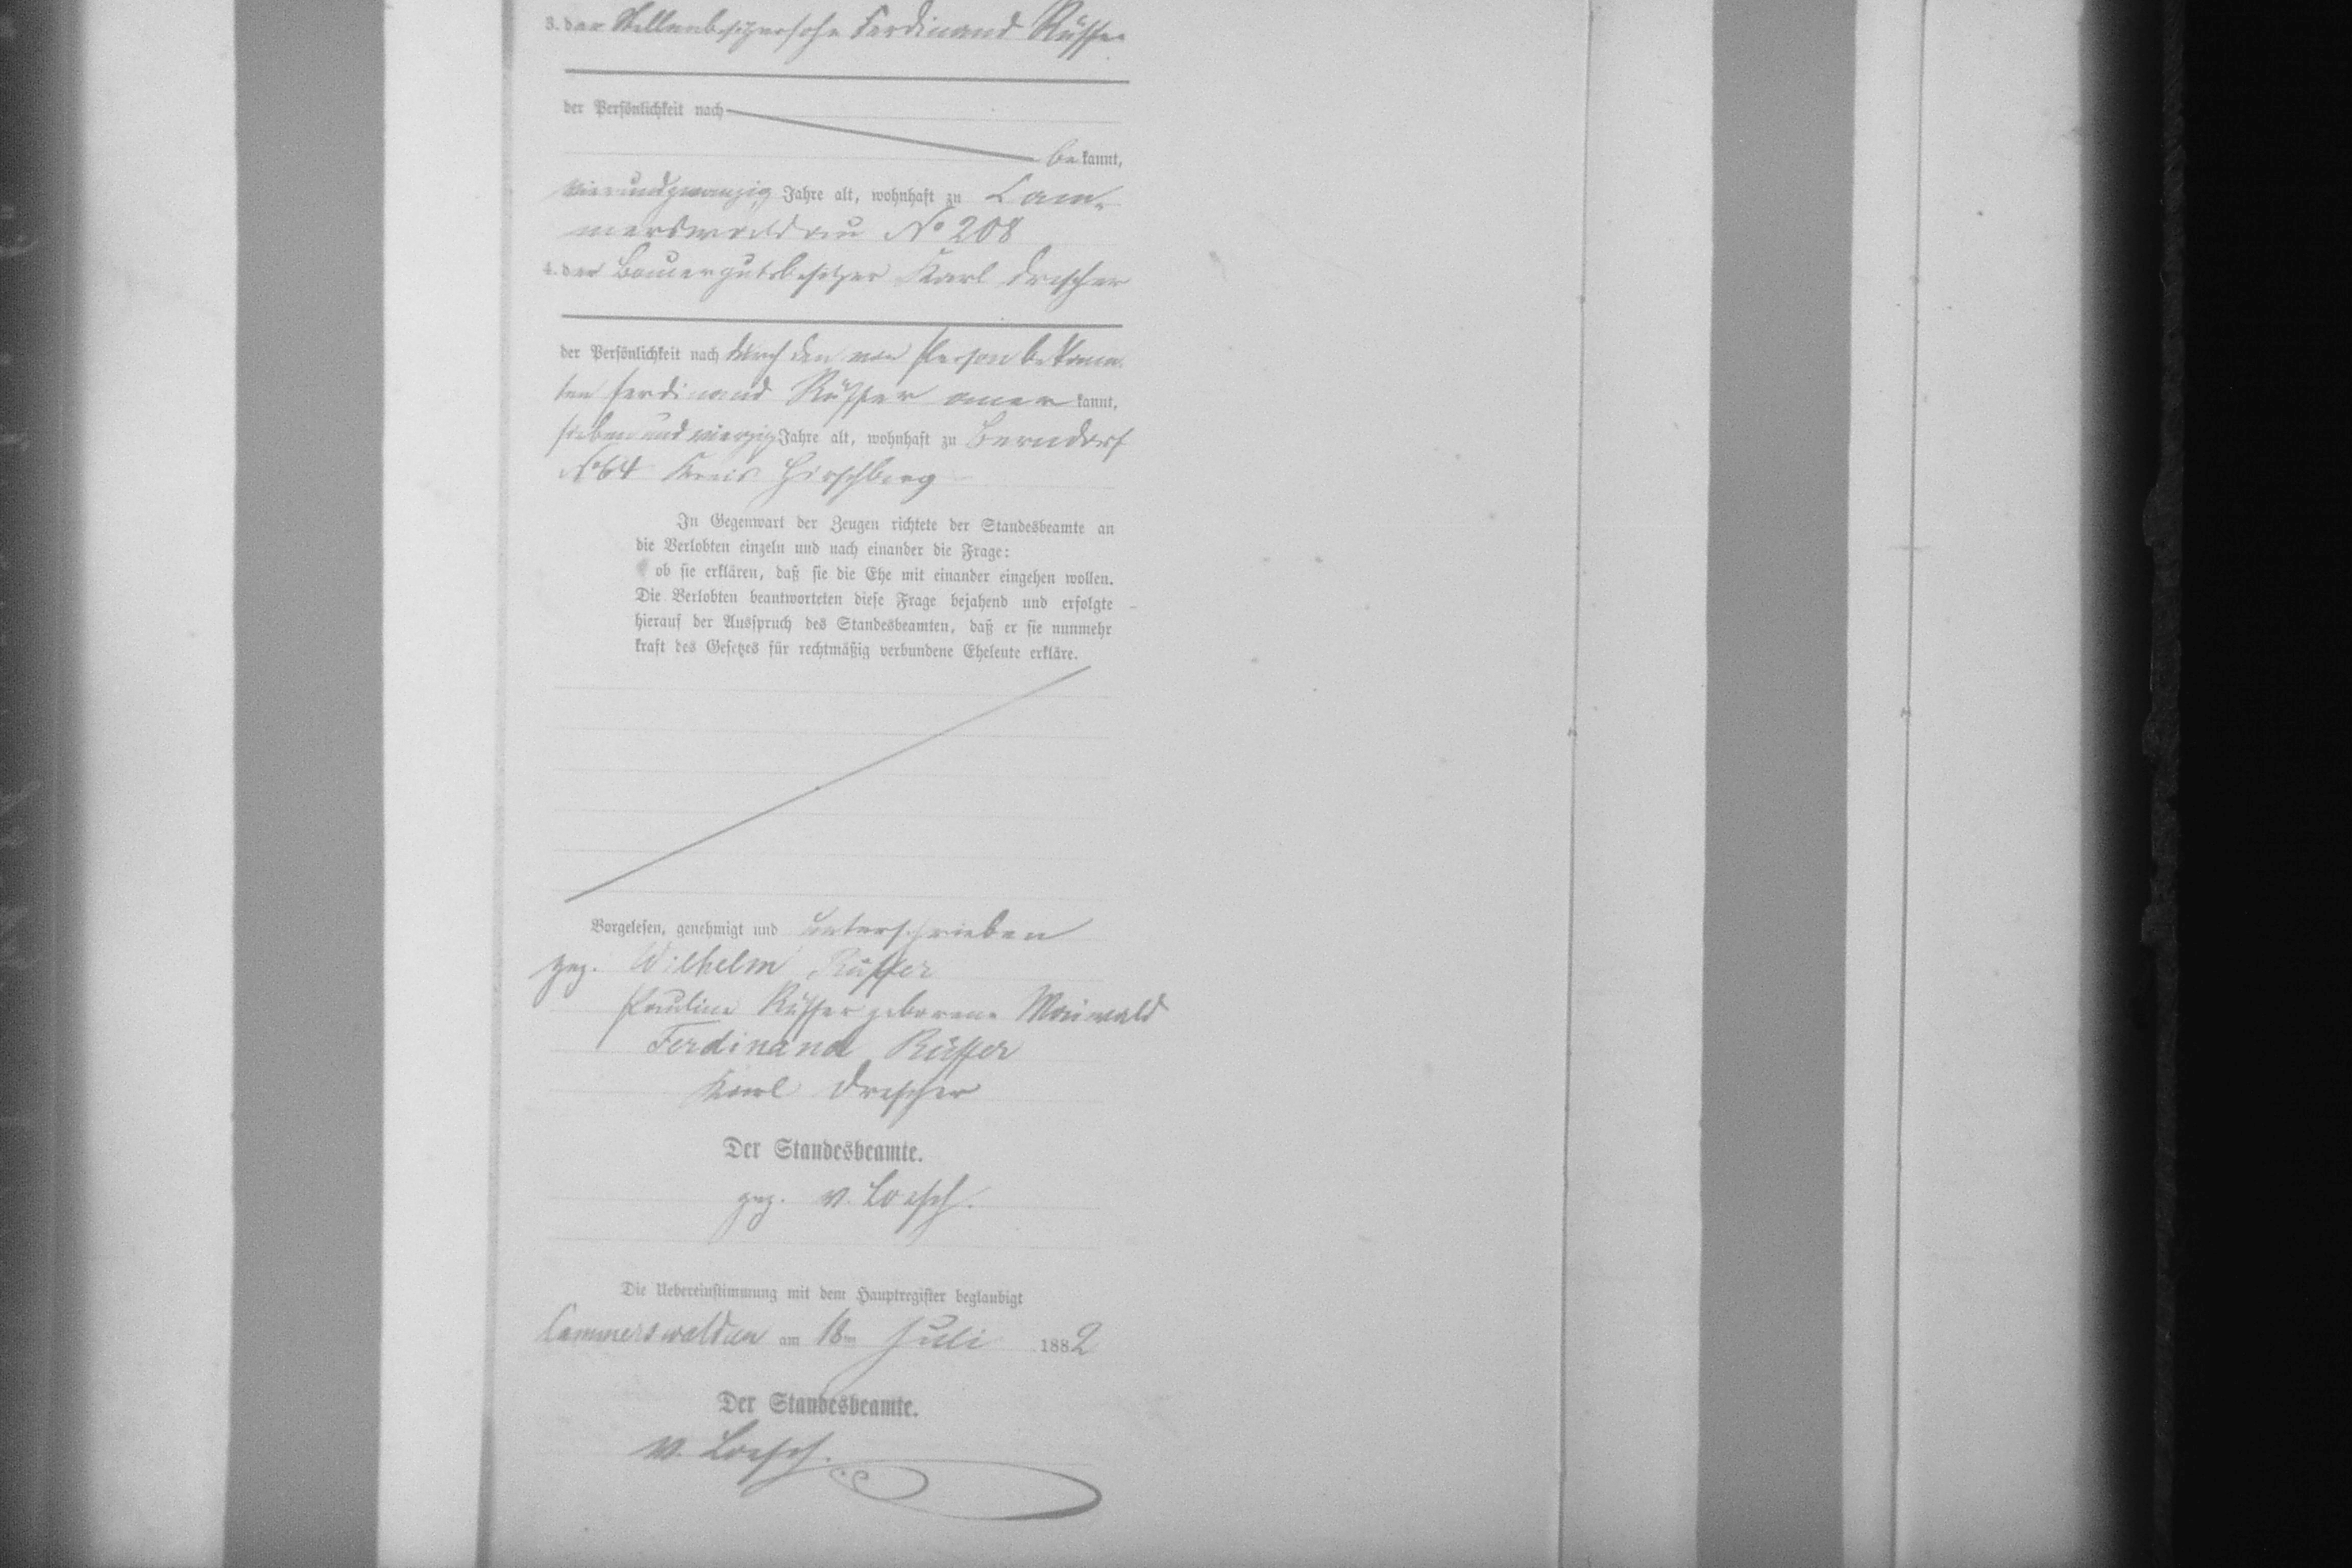 3. der Stellenbesitzersohn Ferdinand Rüffer
der Persönlichkeit nach
be kannt,
vierundzwanzig Jahre alt, wohnhaft zu Cam-
merswaldau No 208
4. der Bauergutsbesitzer Karl Drescher
der Persönlichkeit nach durch den von Person bekann
ten Ferdinand Rüffer aner kannt,
siebenundvierzig Jahre alt, wohnhaft zu Berndorf
No 64 Kreis Hirschberg
In Gegenwart der Zeugen richtete der Standesbeamte an
die Verlobten einzeln und nach einander die Frage:
ob sie erklären, daß sie die Ehe mit einander eingehen wollen.
Die Verlobten beantworteten diese Frage bejahend und erfolgte
hierauf der Ausspruch des Standesbeamten, daß er sie nunmehr
kraft des Gesetzes für rechtmäßig verbundene Eheleute erkläre.
Vorgelesen, genehmigt und unterschrieben
gez. Wilhelm Rüffer
Pauline Rüffer geborene Maiwald
Ferdinand Rüffer
Karl Drescher
Der Standesbeamte.
gez. v. Loesch.
Die Uebereinstimmung mit dem Hauptregister beglaubigt
Cammerswaldau am 18ten Juli 1882
Der Standesbeamte.
v. Loesch.